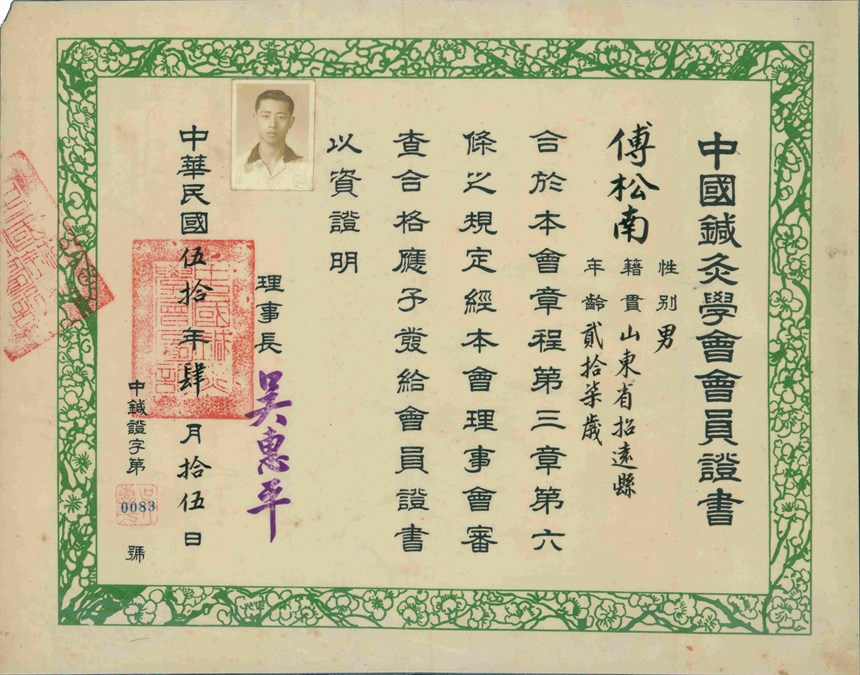 中國鍼灸學會會員證書
傅松南
性別男
籍貫山東省招遠縣
年齡貳拾柒歲
合於本會章程第三章第六
條之規定經本會理事會審
查合格應予發給會員證書
以資證明
理事長 吴惠平
中華民國伍拾年肆月拾伍日
中鍼證字第 0083 號